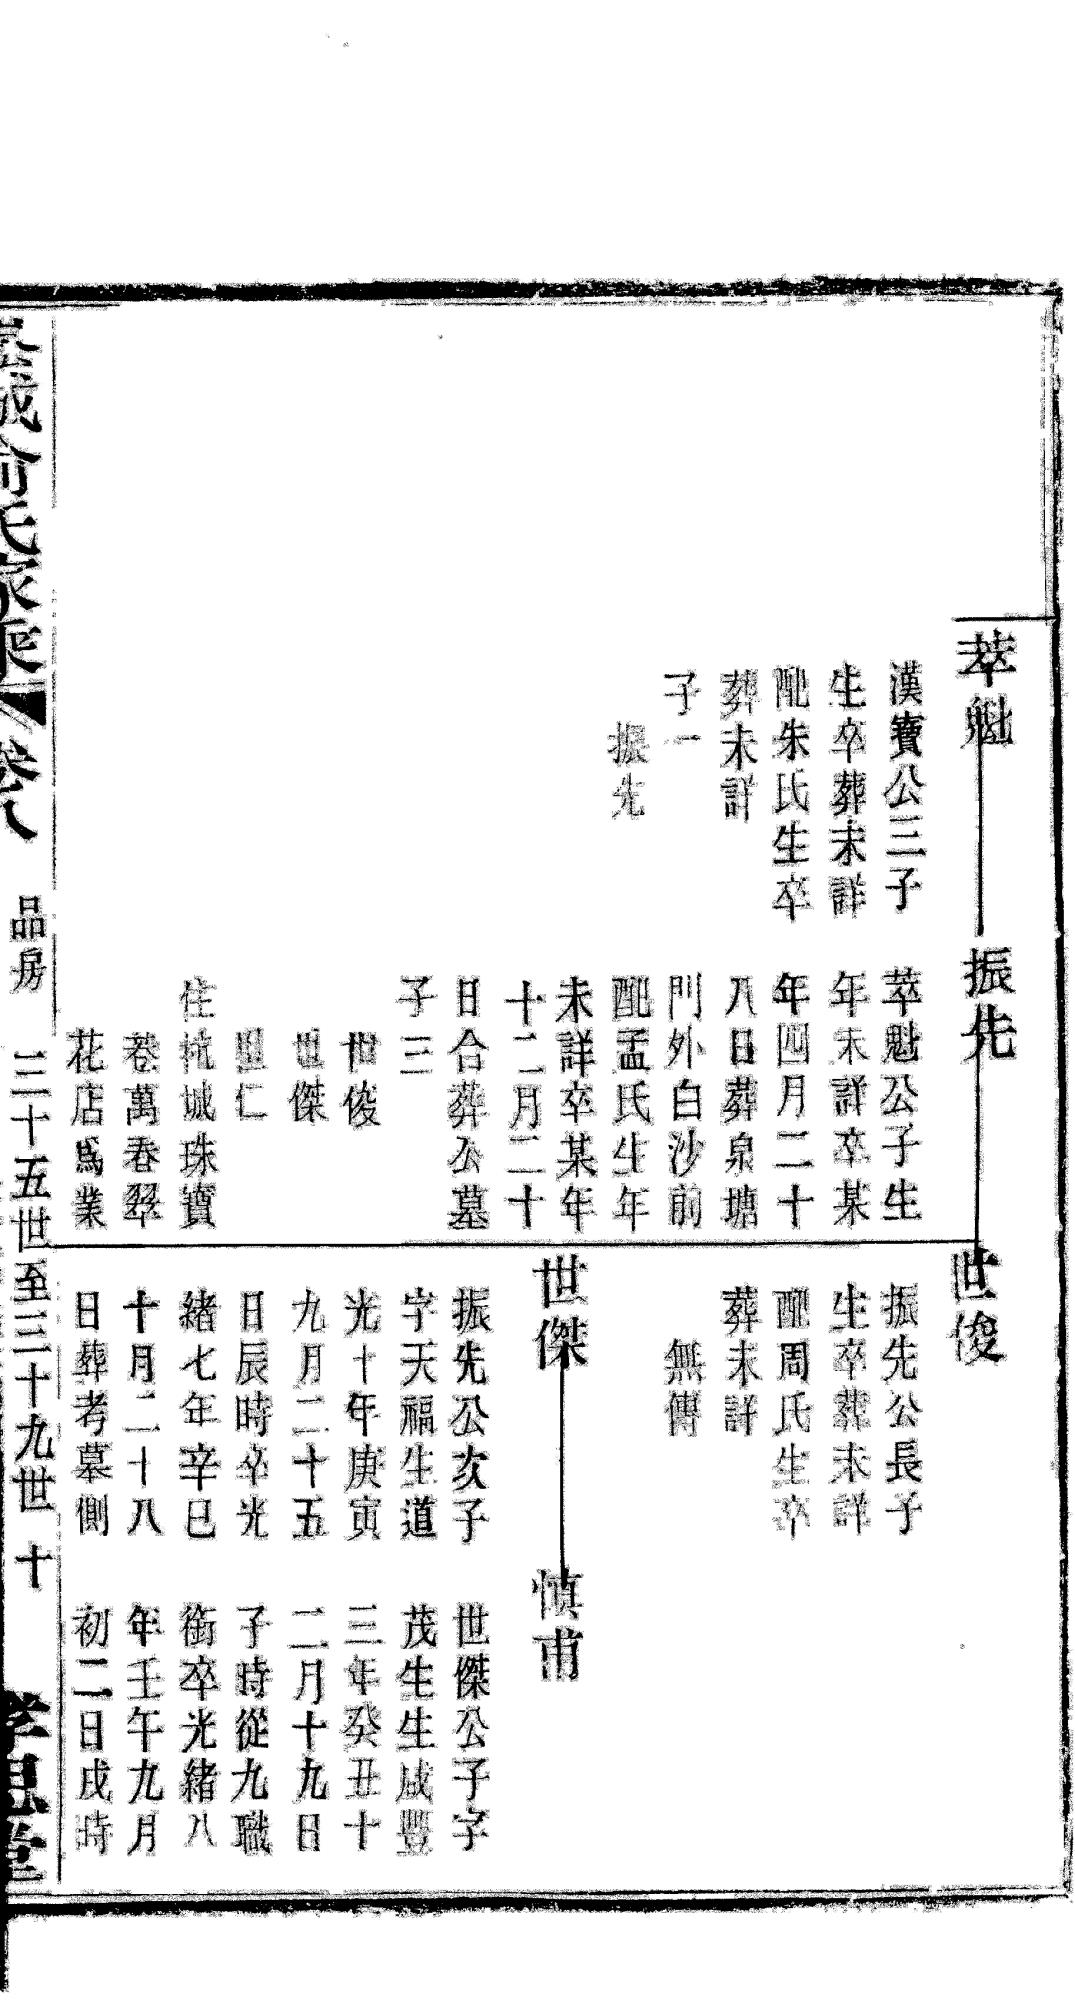 萃魁
漢寶公三子
生卒葬未詳
配朱氏生卒
葬未詳
子一
振先
振先
萃魁公子生
年未詳卒某
年四月二十
八日葬泉塘
門外白沙前
配孟氏生年
未詳卒某年
十二月二十
日合葬公墓
子三
世俊
世傑
世仁
住杭城珠寶
巷萬春翠
花店爲業
世俊
振先公長子
生卒葬未詳
配周氏生卒
葬未詳
無傳
世傑
振先公次子
字天福生道
光十年庚寅
九月二十五
日辰時卒光
緒七年辛巳
十月二十八
日葬考墓側
慎甫
世傑公子字
茂生生咸豐
三年癸丑十
二月十九日
子時從九職
銜卒光緒八
年壬午九月
初二日戌時
俞氏家乘 卷八 品房 三十五世至三十九世 十 孝思堂